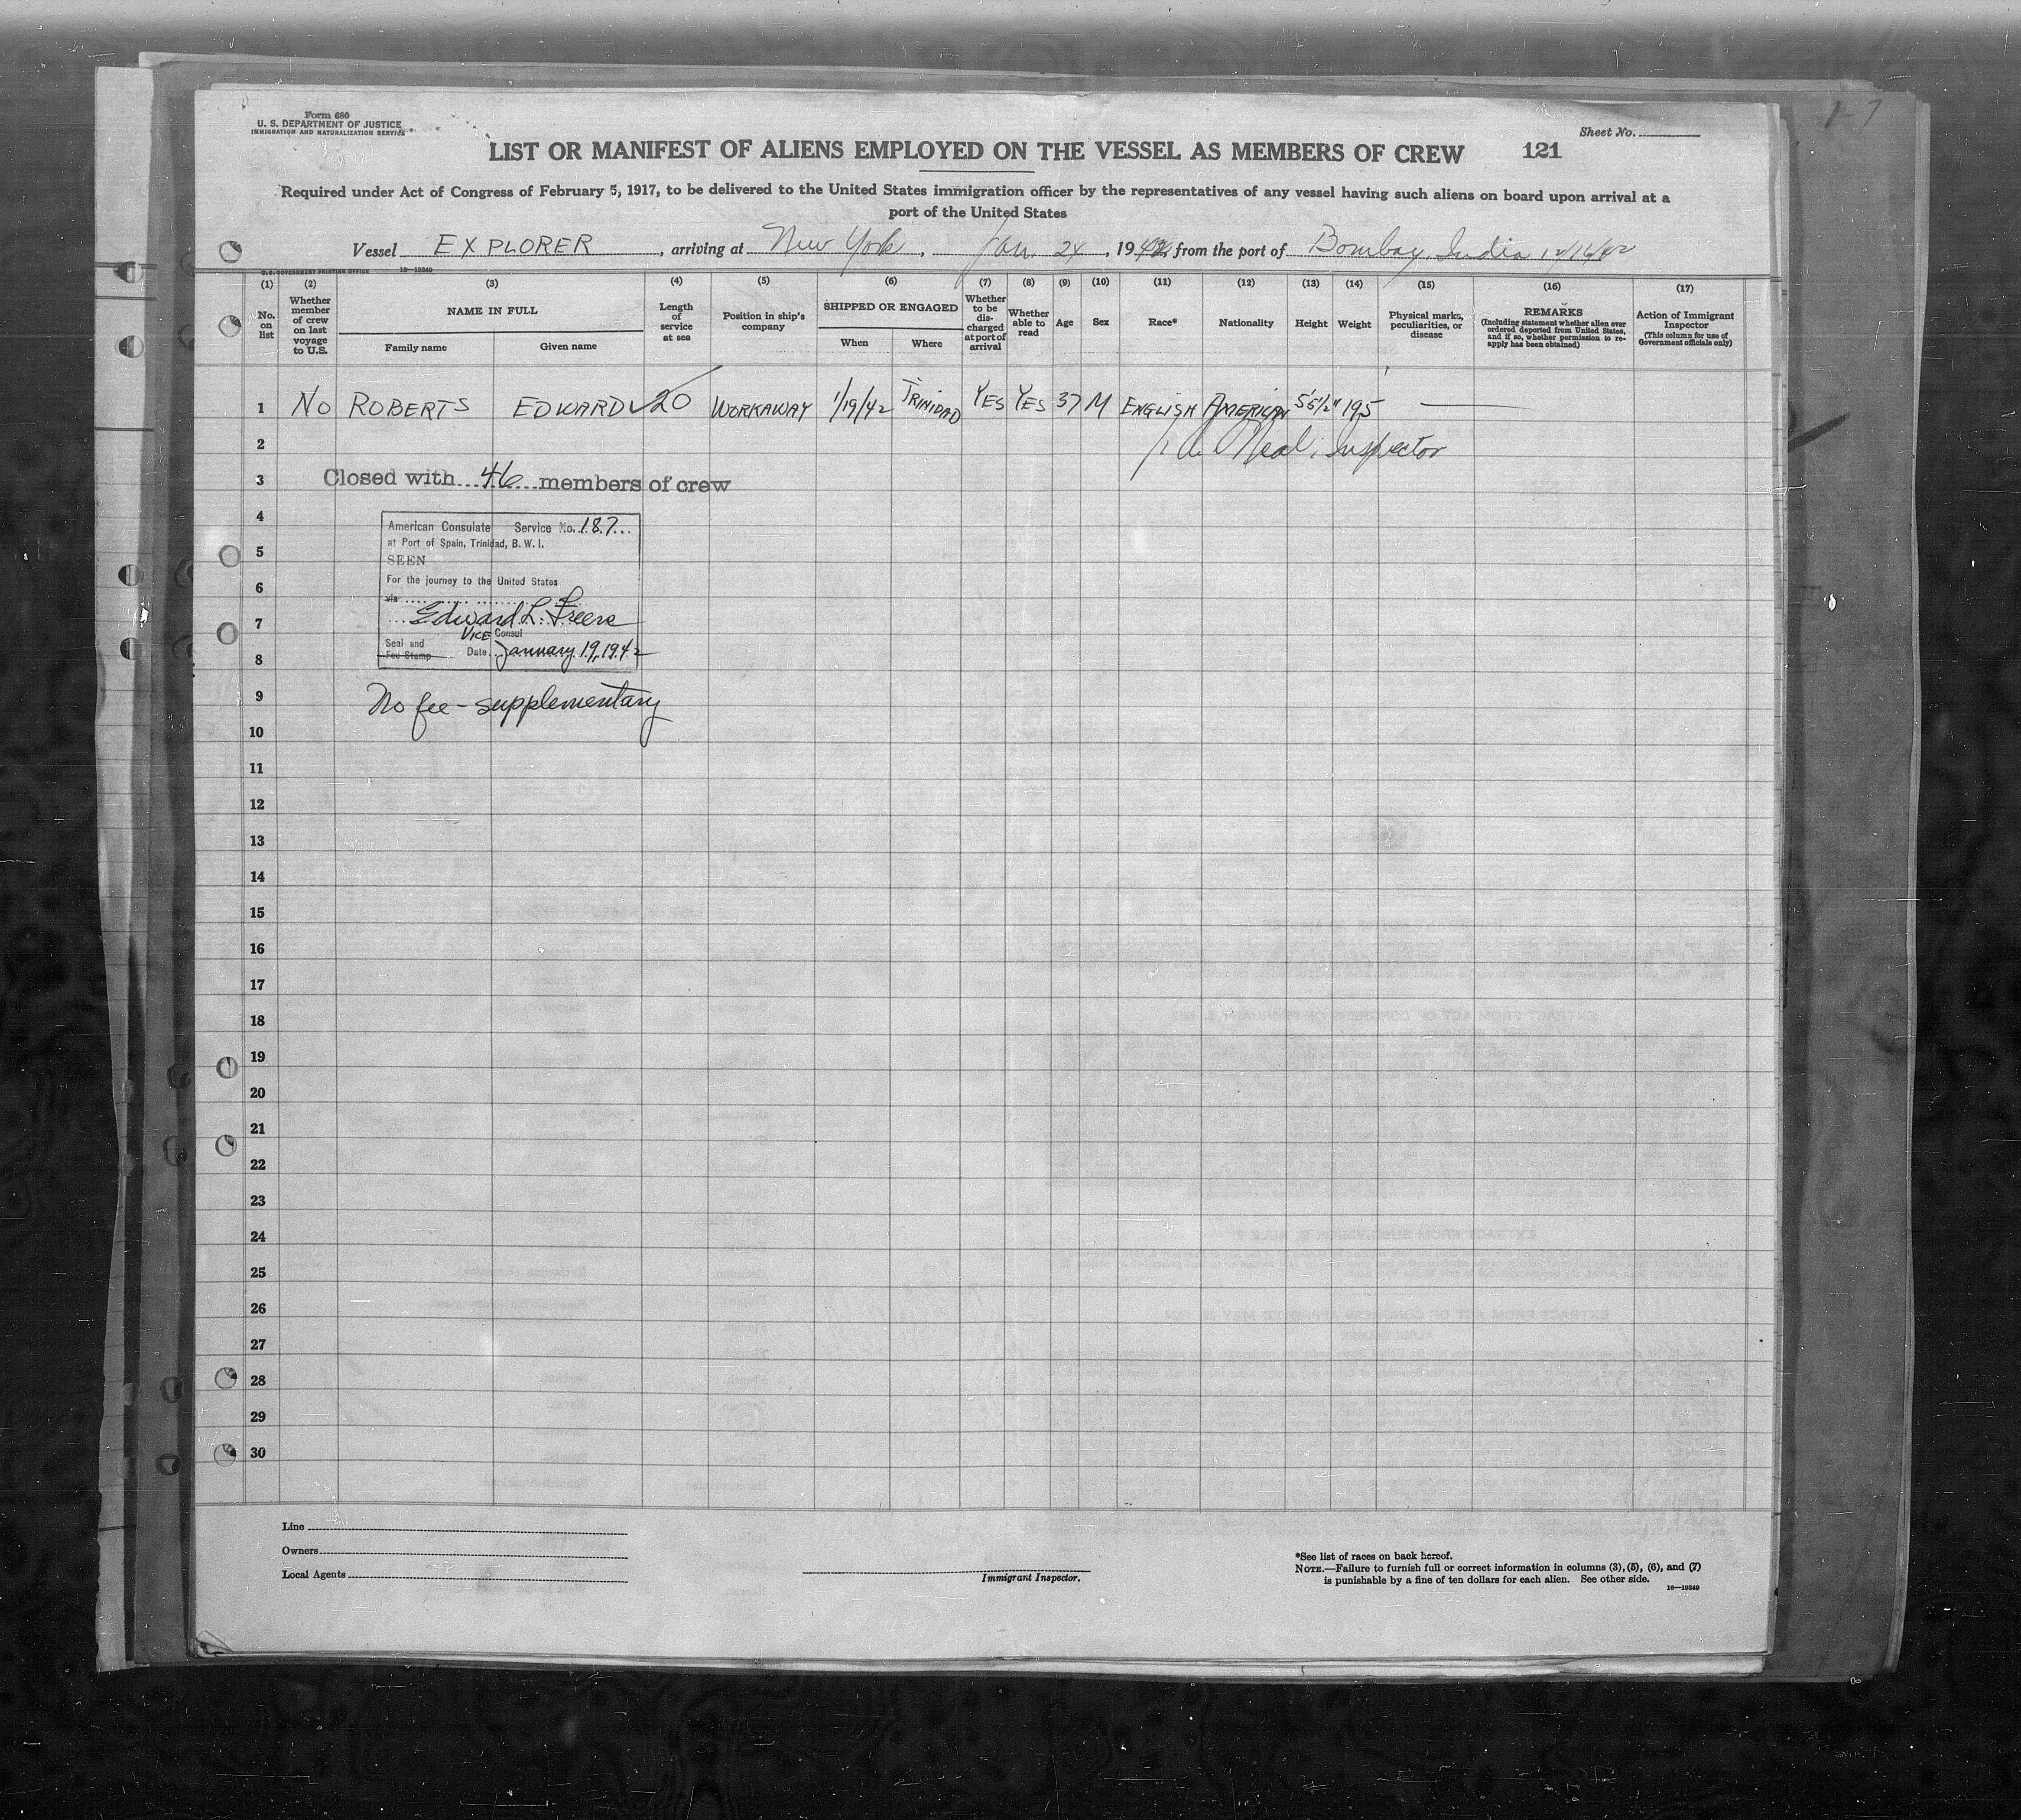 1-7
Form 680
U. S. DEPARTMENT OF JUSTICE
IMMIGRATION AND NATURALIZATION SERVICE
Sheet No.
LIST OR MANIFEST OF ALIENS EMPLOYED ON THE VESSEL AS MEMBERS OF CREW 121
Required under Act of Congress of February 5, 1917, to be delivered to the United States immigration officer by the representatives of any vessel having such aliens on board upon arrival at a
port of the United States
Vessel EXPLORER, arriving at New York, Jan. 24, 1942, from the port of Bombay, India
U.S. GOVERNMENT PRINTING OFFICE 16—19349
(1) (2) (3) (4) (5) (6) (7) (8) (9) (10) (11) (12) (13) (14) (15) (16) (17)
No. on list
Whether member of crew on last voyage to U.S.
NAME IN FULL
Family name Given name
Length of service at sea
Position in ship's company
SHIPPED OR ENGAGED
When Where
Whether to be discharged at port of arrival
Whether able to read
Age
Sex
Race*
Nationality
Height
Weight
Physical marks, peculiarities, or disease
REMARKS
(Including statement whether alien ever ordered deported from United States, and if so, whether permission to reapply has been obtained)
Action of Immigrant Inspector
(This column for use of Government officials only)
1 NO ROBERTS EDWARD ✓ 20 WORKAWAY 1/19/42 TRINIDAD YES YES 37 M ENGLISH AMERICAN 5'5 1/2" 195 —
2 Neal, Inspector
3 Closed with 46 members of crew
4
American Consulate Service No. 187
at Port of Spain, Trinidad, B. W. I.
5
SEEN
6
For the journey to the United States
via
7
Edward L. Freers
Vice Consul
8
Seal and Fee Stamp Date January 19, 1942
9
No fee - supplementary
10
11
12
13
14
15
16
17
18
19
20
21
22
23
24
25
26
27
28
29
30
Line
Owners
Local Agents
Immigrant Inspector.
*See list of races on back hereof.
NOTE.—Failure to furnish full or correct information in columns (3), (5), (6), and (7)
is punishable by a fine of ten dollars for each alien. See other side.
16—19349